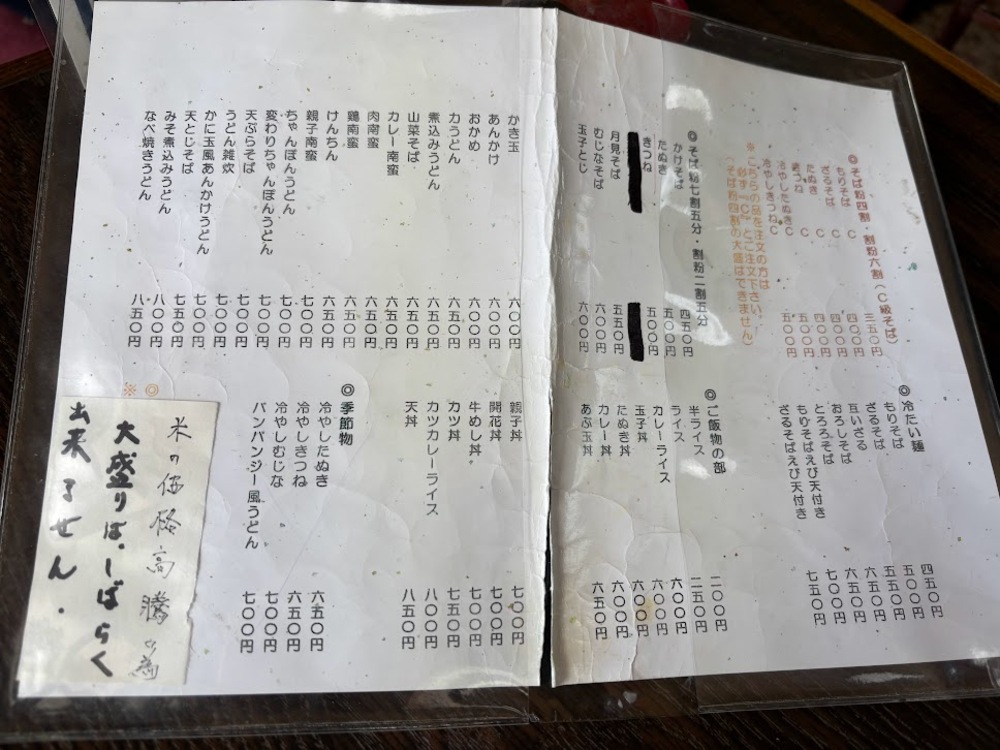 ◎そば粉四割・割粉六割(C級そば)
もりそば C 三五〇円
ざるそば C 四〇〇円
たぬき C 四〇〇円
きつね C 四〇〇円
冷やしたぬきC 五〇〇円
冷やしきつねC 五〇〇円
※こちらの品を注文の方は
必ず『C』とご注文下さい。
そば粉四割の大盛はできません)
◎そば粉七割五分・割粉二割五分
かけそば 四五〇円
たぬき 五五〇円
きつね 五〇〇円
月見そば 五五〇円
むじなそば 六〇〇円
玉子とじ 六〇〇円
◎冷たい麺
もりそば 四五〇円
ざるそば 五〇〇円
互いざる 五五〇円
おろしそば 六〇〇円
とろろそば 六五〇円
もりそばえび天付き 七〇〇円
ざるそばえび天付き 七五〇円
◎ご飯物の部
半ライス 二〇〇円
ライス 二五〇円
カレーライス 六〇〇円
玉子丼 六〇〇円
たぬき丼 六〇〇円
カレー丼 六〇〇円
あぶ玉丼 六五〇円
かき玉 六〇〇円
あんかけ 六〇〇円
おかめ 六五〇円
力うどん 六五〇円
煮込みうどん 六五〇円
山菜そば 六五〇円
カレー南蛮 六五〇円
肉南蛮 六五〇円
鶏南蛮 六五〇円
けんちん 六五〇円
親子南蛮 七〇〇円
ちゃんぽんうどん 七〇〇円
変わりちゃんぽんうどん 七〇〇円
天ぷらそば 七〇〇円
うどん雑炊 七〇〇円
かに玉風あんかけうどん 七〇〇円
天とじそば 七五〇円
みそ煮込みうどん 八〇〇円
なべ焼きうどん 八五〇円
親子丼 七〇〇円
開花丼 七〇〇円
牛めし丼 七〇〇円
カツ丼 七五〇円
カツカレーライス 八〇〇円
天丼 八五〇円
◎季節物
冷やしたぬき 六五〇円
冷やしきつね 六五〇円
冷やしむじな 七〇〇円
バンバンジー風うどん 七〇〇円
◎
※
米の価格高騰の為
大盛りは、しばらく
出来ません.